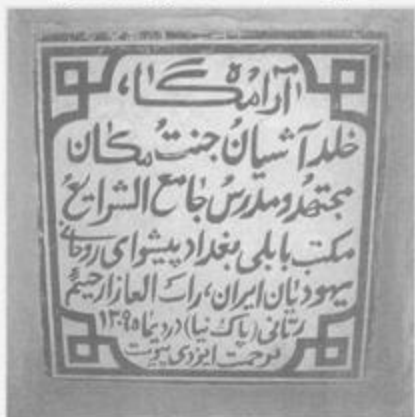 آرامگاه
خلد آشیان جنت مکان
مجتهد و مدرس جامع الشرایع
مکتب بابلی بغداد پیشوای روحانی
یهودیان ایران، راب العازار حییم
ربّانی (پاک نیا) در دیماه ۱۳۰۹
به رحمت ایزدی پیوست